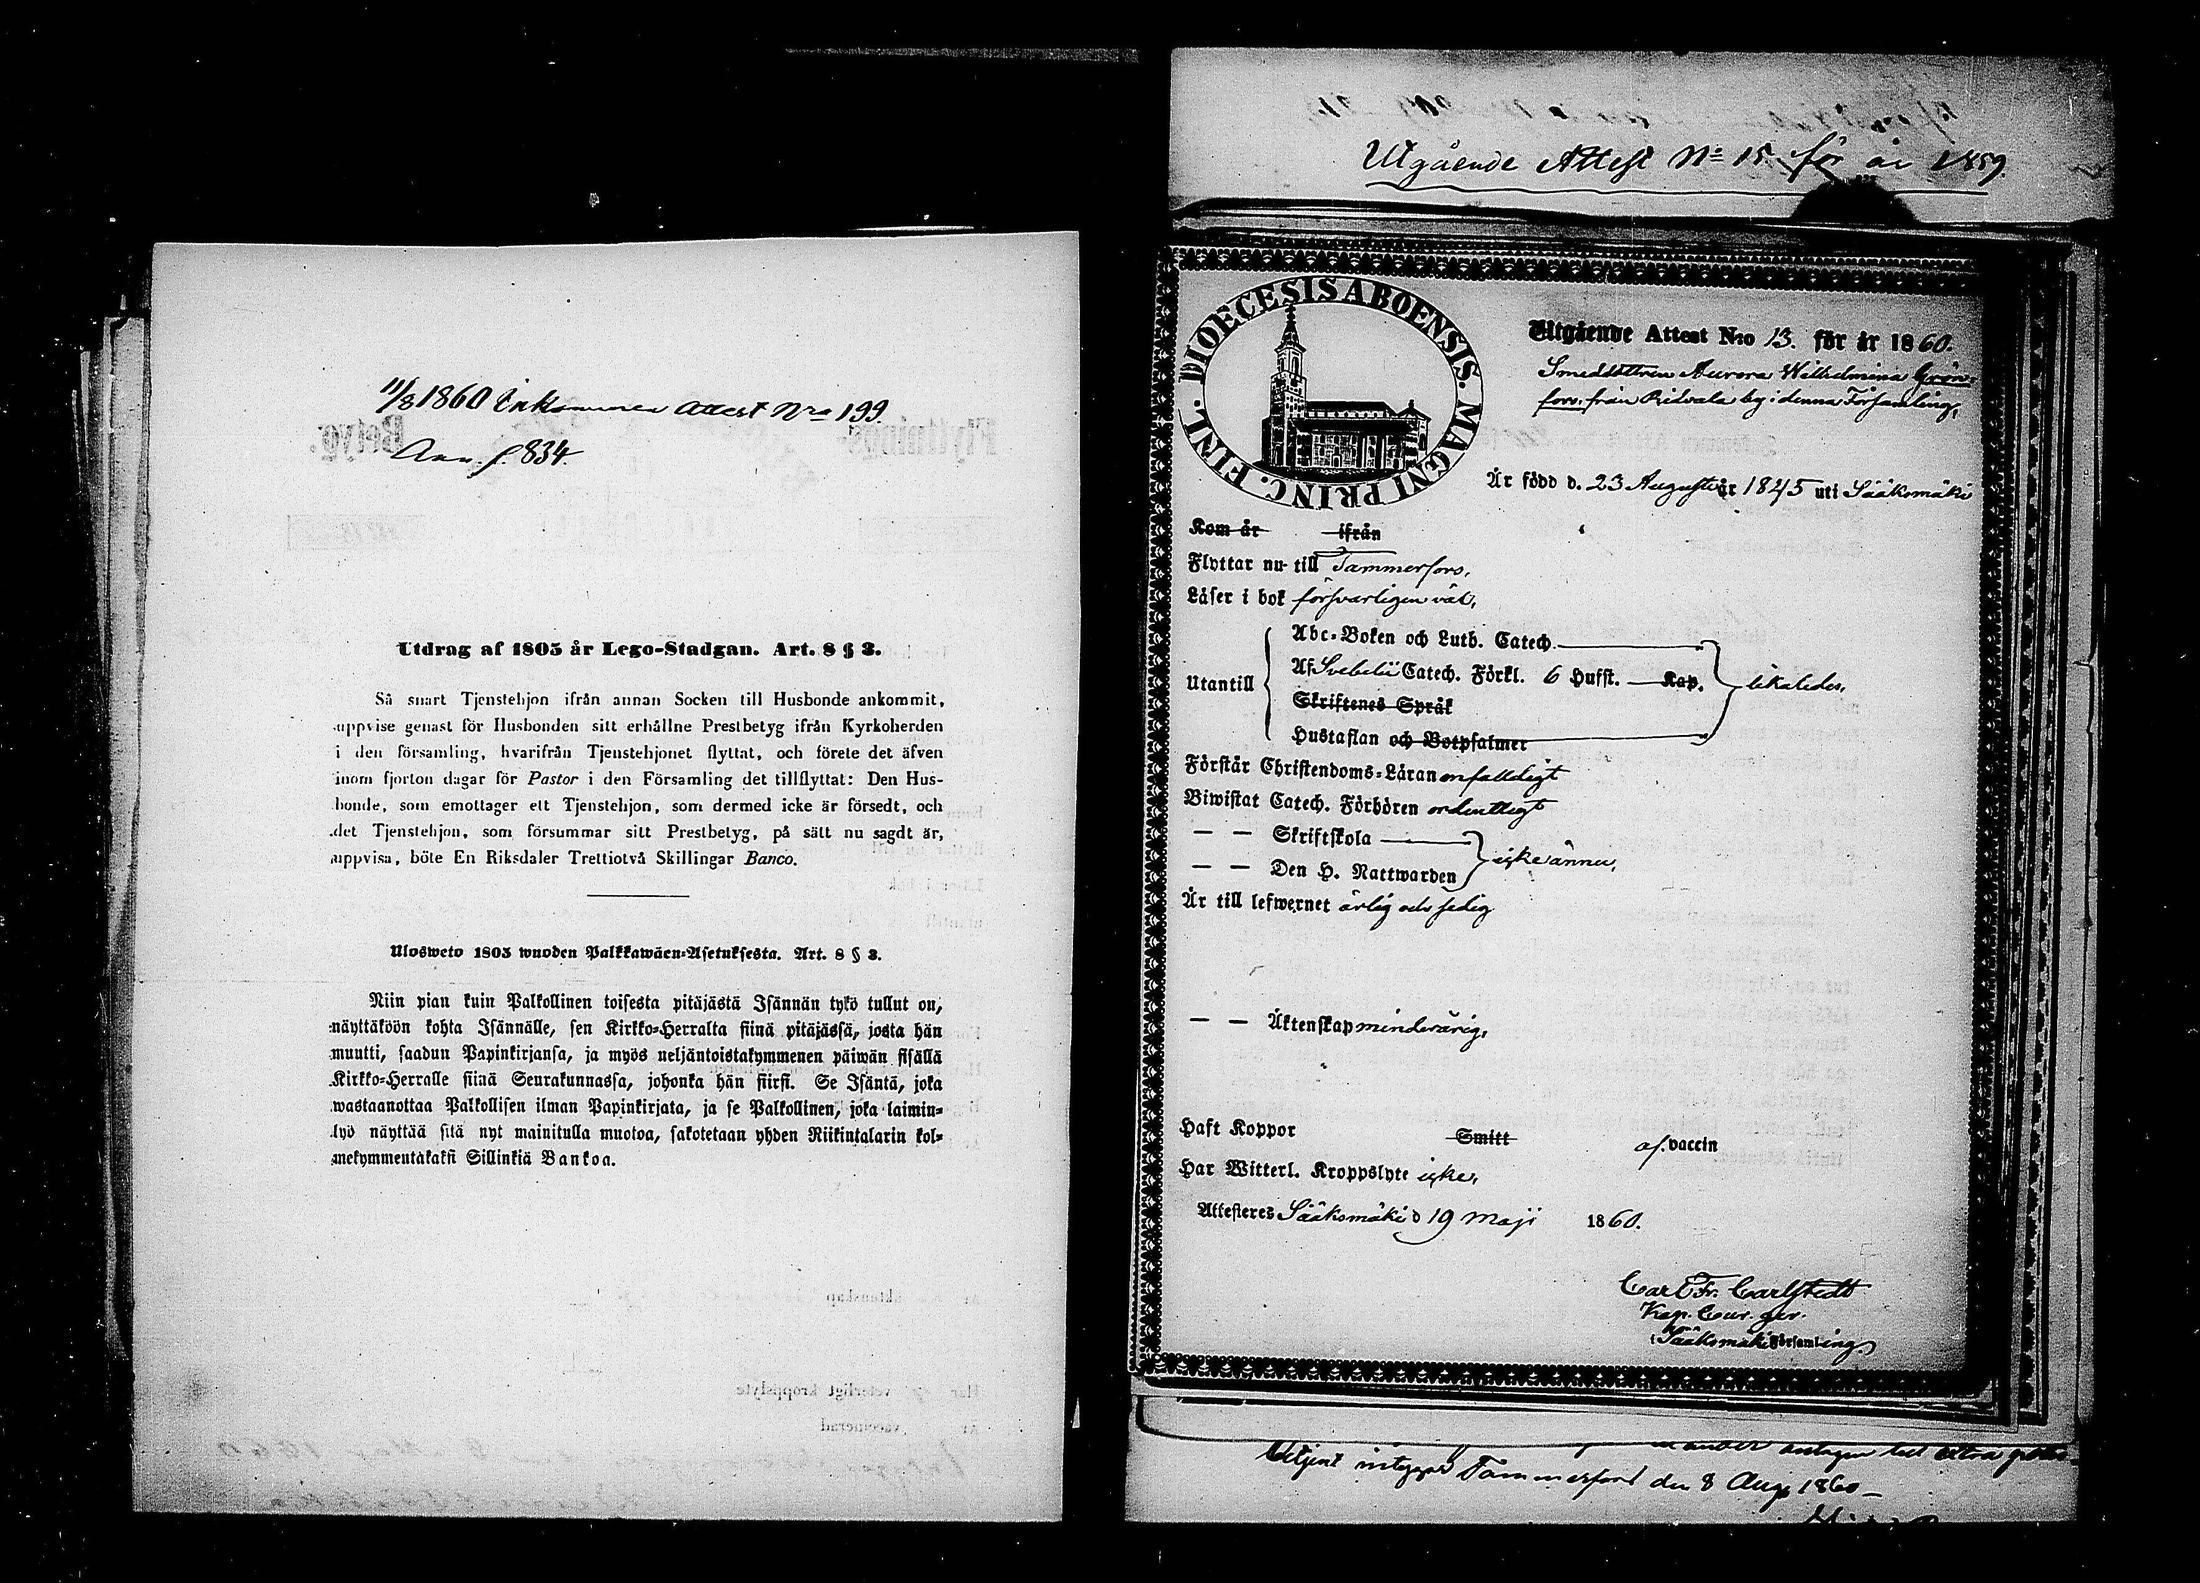 11/8 1860 Inkommen Attest Nro 199.
Ann. f. 834.
Utdrag af 1805 år Lego-Stadgan. Art. 8 § 3.
Så snart Tjenstehjon ifrån annan Socken till Husbonde ankommit,
uppvise genast för Husbonden sitt erhållne Prestbetyg ifrån Kyrkoherden
i den församling, hvarifrån Tjenstehjonet flyttat, och förete det äfven
inom fjorton dagar för Pastor i den Församling det tillflyttat: Den Hus-
bonde, som emottager ett Tjenstehjon, som dermed icke är försedt, och
det Tjenstehjon, som försummar sitt Prestbetyg, på sätt nu sagdt är,
uppvisa, böte En Riksdaler Trettiotvå Skillingar Banco.
Ulosweto 1805 wuoden Palkkawäen-Asetuksesta. Art. 8 § 3.
Niin pian kuin Palkollinen toisesta pitäjästä Isännän tykö tullut on,
näyttäköön kohta Isännälle, sen Kirkko-Herralta siinä pitäjässä, josta hän
muutti, saadun Papinkirjansa, ja myös neljäntoistakymmenen päiwän sisällä
Kirkko-Herralle siinä Seurakunnassa, johonka hän siirsi. Se Isäntä, joka
wastaanottaa Palkollisen ilman Papinkirjata, ja se Palkollinen, joka laimin-
lyö näyttää sitä nyt mainitulla muotoa, sakotetaan yhden Riikintalarin kol-
mekymmentäkaksi Sillinkiä Bankoa.
Utgående Attest No 15. för år 1859.
DIOECESIS ABOENSIS. MAGNI PRINC. FINL.
Utgående Attest N:o 13. för år 1860.
Smeddottren Aurora Wilhelmina Grön-
fors från Ridvala by i denna Församling,
Är född d. 23 Augusti år 1845 uti Sääksmäki
Kom år ifrån
Flyttar nu till Tammerfors,
Läser i bok försvarligen väl,
Utantill
Abc-Boken och Luth. Catech.
Af Svebelii Catech. Förkl. 6 Hufst. Kap.
likaledes,
Skriftenes Språk
Hustaflan och Botpsalmer
Förstår Christendoms-Läran enfaldigt
Biwistat Catech. Förhören ordentligt
— — Skriftskola
icke ännu,
— — Den H. Nattwarden
Är till lefwernet ärlig och sedig
— — Äktenskap minderårig,
Haft Koppor Smitt af vaccin
Har Witterl. Kroppslyte icke,
Attesteres Sääksmäki d 19 Maji 1860.
Carl Fr. Carlstedt
Kap. Cur. ger.
i Sääksmäki Församling
antagen
Betjent intygar Tammerfors den 8 Aug 1860